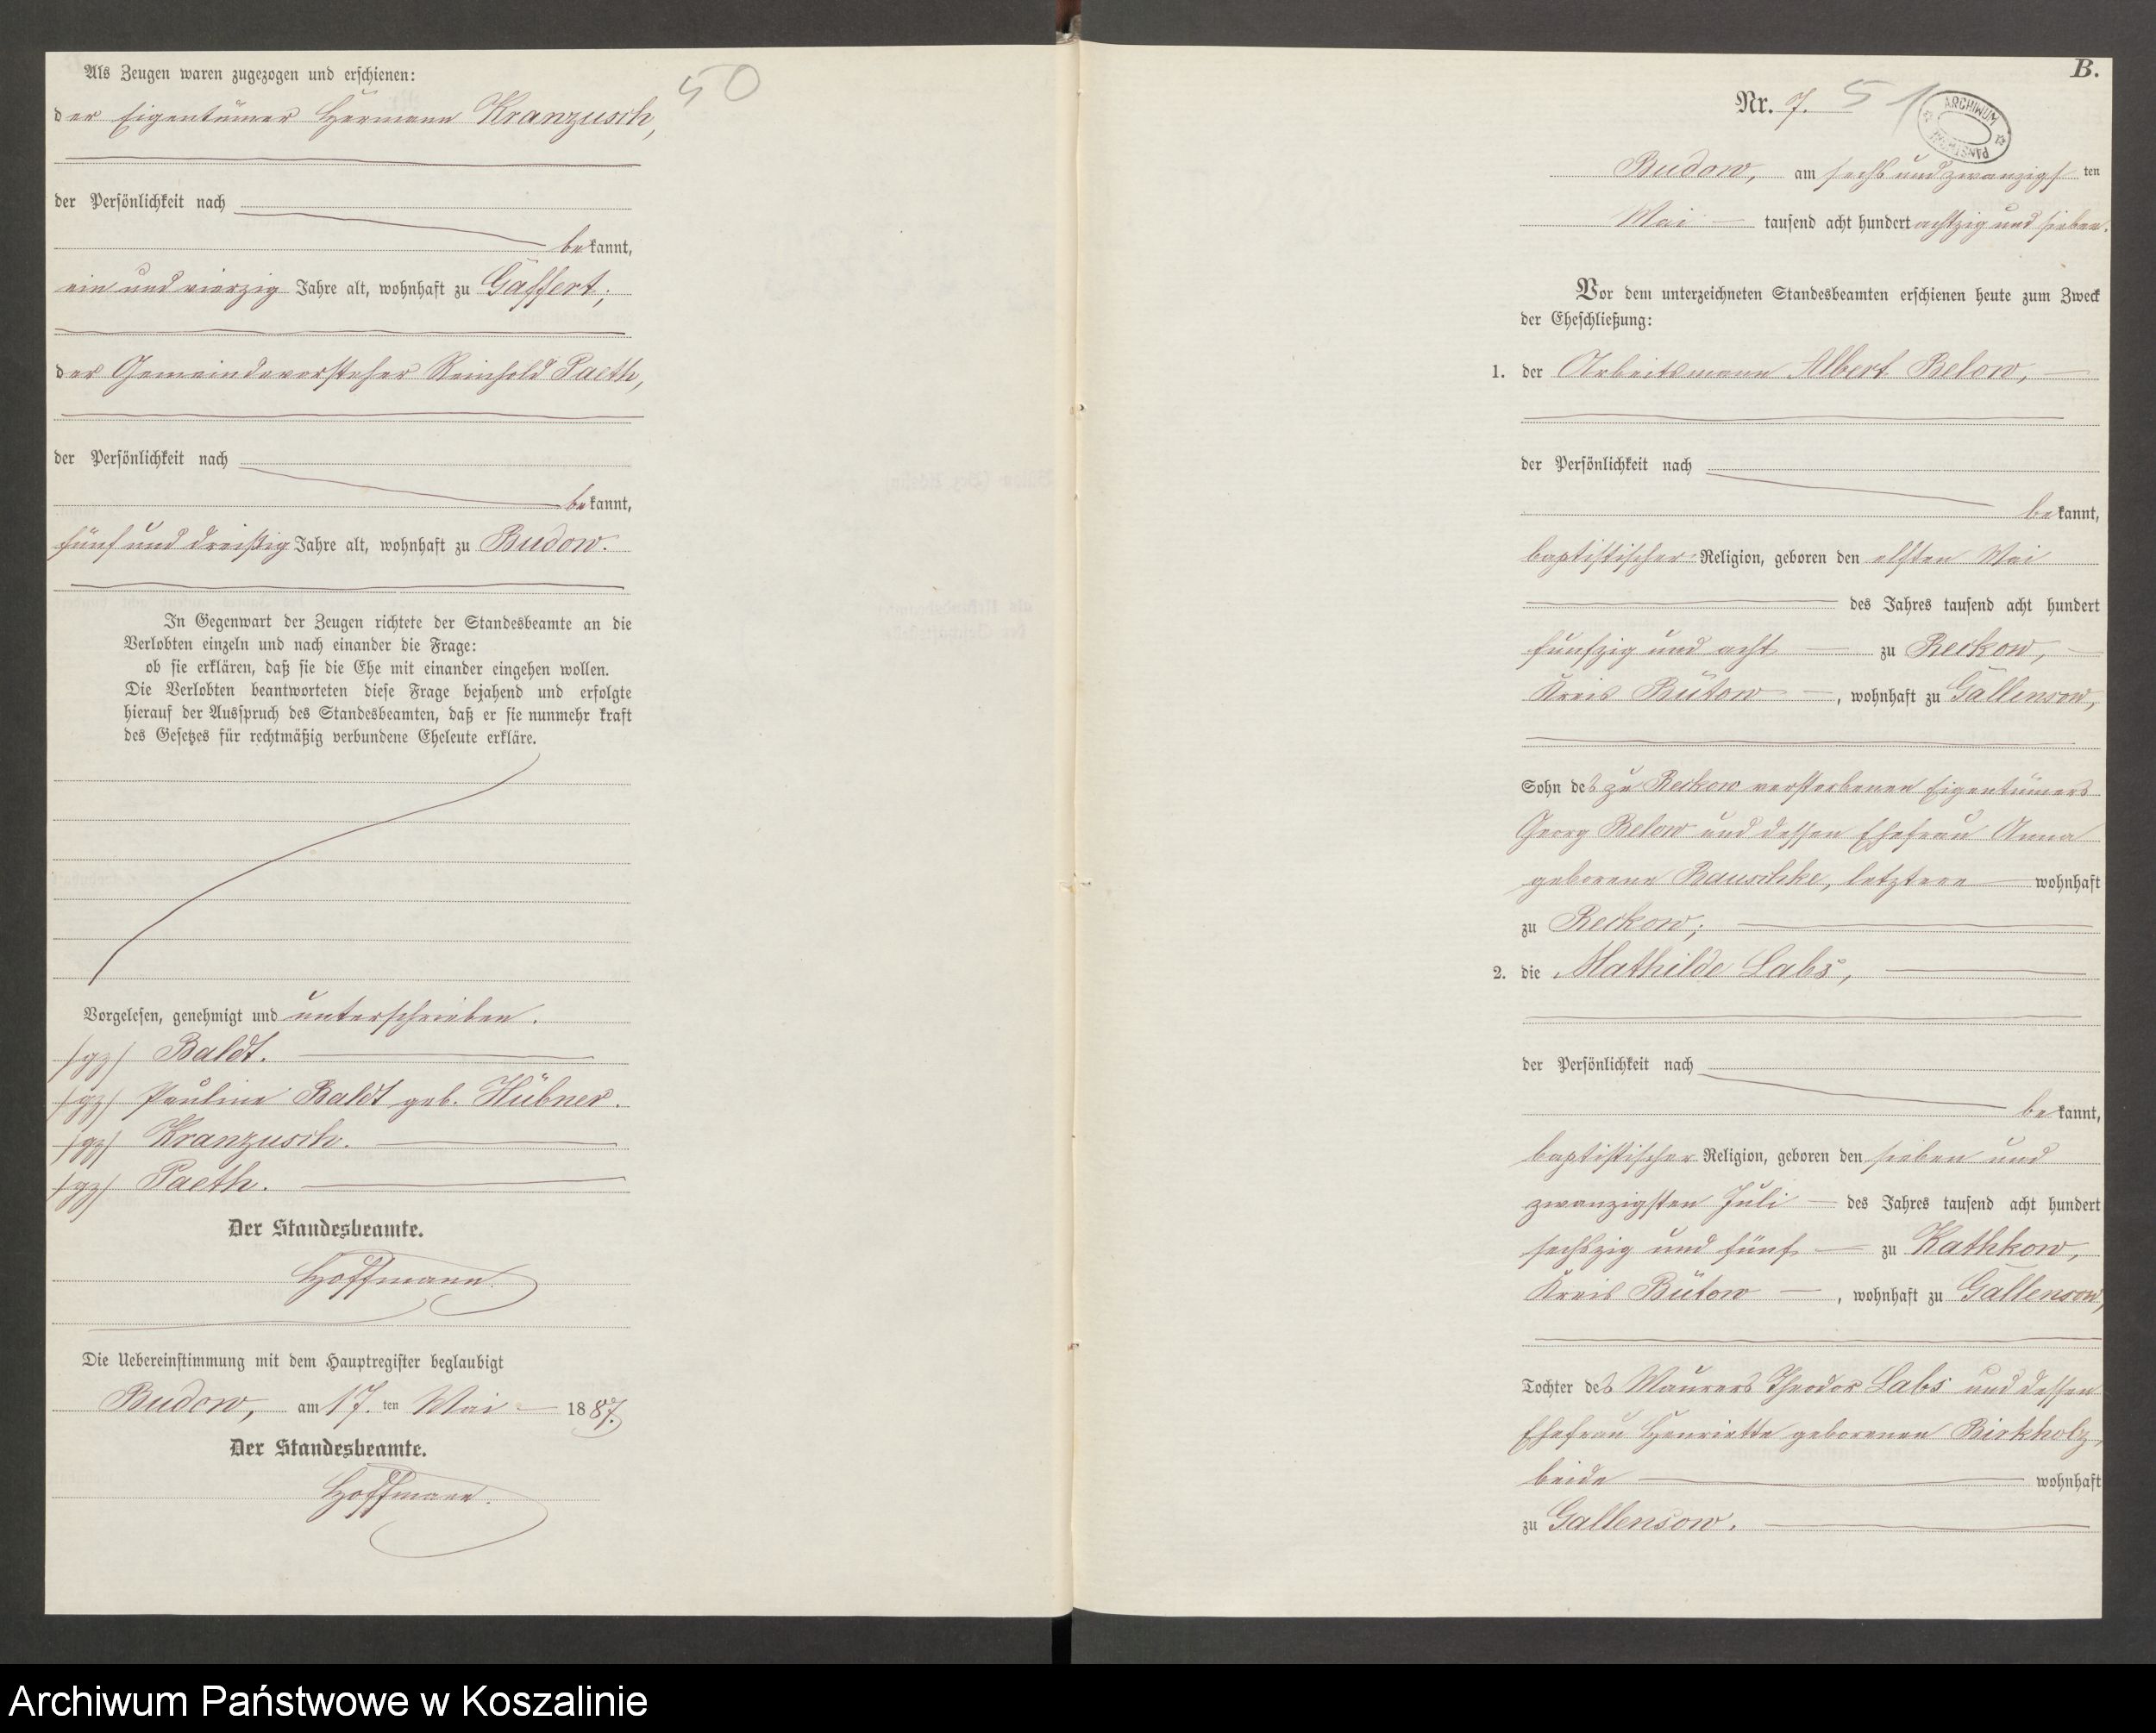 Als Zeugen waren zugezogen und erschienen:
der Eigentümer Hermann Kranzusch,
50
der Persönlichkeit nach
bekannt,
ein und vierzig Jahre alt, wohnhaft zu Gaffert;
der Gemeindevorsteher Reinhold Paeth,
der Persönlichkeit nach
bekannt,
fünf und dreißig Jahre alt, wohnhaft zu Budow.
In Gegenwart der Zeugen richtete der Standesbeamte an die
Verlobten einzeln und nach einander die Frage:
ob sie erklären, daß sie die Ehe mit einander eingehen wollen.
Die Verlobten beantworteten diese Frage bejahend und erfolgte
hierauf der Ausspruch des Standesbeamten, daß er sie nunmehr kraft
des Gesetzes für rechtmäßig verbundene Eheleute erkläre.
Vorgelesen, genehmigt und unterschrieben.
/gz/ Baldt.
/gz/ Pauline Baldt geb. Hübner.
/gz/ Kranzusch.
/gz/ Paeth.
Der Standesbeamte.
Hoffmann.
Die Uebereinstimmung mit dem Hauptregister beglaubigt
Budow, am 17. ten Mai 1887.
Der Standesbeamte.
Hoffmann.
B.
Nr. 7. 51
ARCHIWUM
Budow, am sechs und zwanzigsten
Mai tausend acht hundert achtzig und sieben.
Vor dem unterzeichneten Standesbeamten erschienen heute zum Zweck
der Eheschließung:
1. der Arbeitsmann Albert Below,
der Persönlichkeit nach
bekannt,
baptistischer Religion, geboren den elften Mai
des Jahres tausend acht hundert
funfzig und acht zu Reckow,
Kreis Bütow, wohnhaft zu Gallensow,
Sohn des zu Reckow verstorbenen Eigentümers
Georg Below und dessen Ehefrau Anna
geborene Rauschke, letztere wohnhaft
zu Reckow;
2. die Mathilde Labs,
der Persönlichkeit nach
bekannt,
baptistischer Religion, geboren den sieben und
zwanzigsten Juli des Jahres tausend acht hundert
sechszig und fünf zu Kathkow,
Kreis Bütow, wohnhaft zu Gallensow,
Tochter des Maurers Theodor Labs und dessen
Ehefrau Henriette geborenen Birkholz,
beide wohnhaft
zu Gallensow.
Archiwum Państwowe w Koszalinie